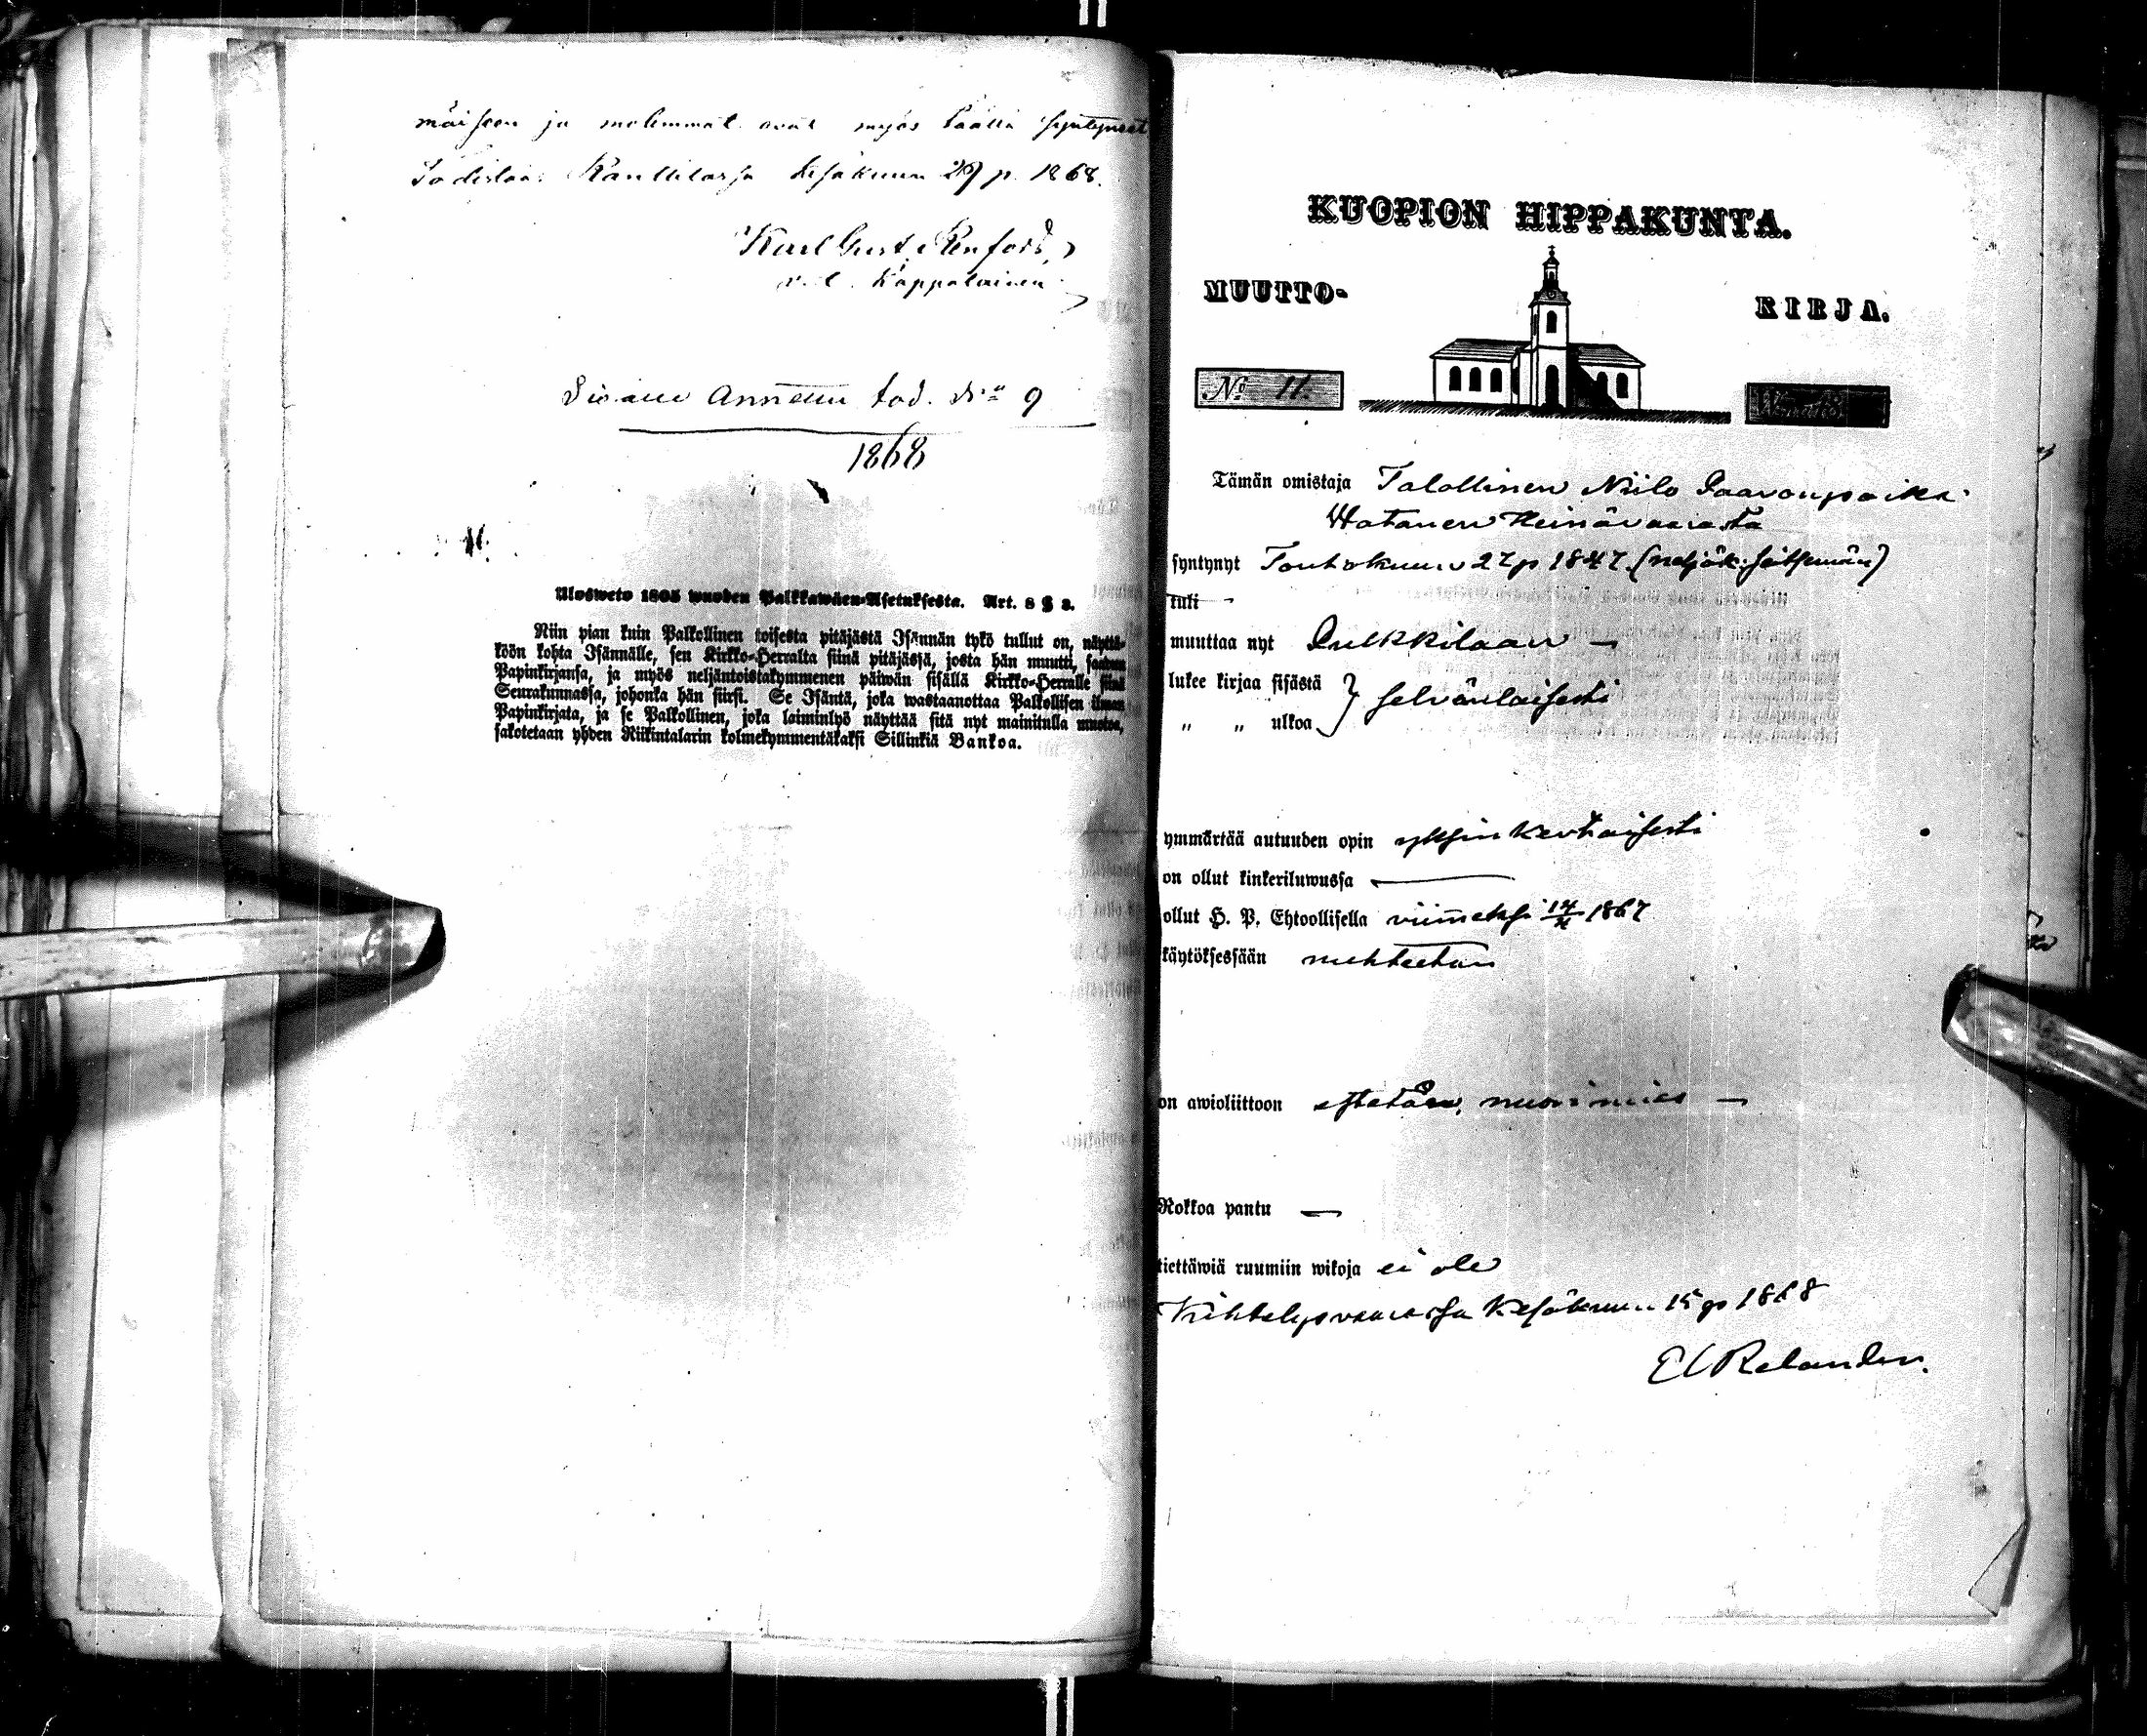 mäiseen ja molemmat ovat myös täällä syntyneet
Todistaa: Rantilassa kesäkuun 29 p. 1868.
Karl Gust. Renfors,
v. t. Kappalainen
Sisälle Annettu tod. No 9
1868
11.
Ulosweto 1805 wuoden Palkkawäen-Asetuksesta. Art. 8 § 3.
Niin pian kuin Palkollinen toisesta pitäjästä Isännän tykö tullut on, näyttä-
köön kohta Isännälle, sen Kirkko-Herralta siinä pitäjässä, josta hän muutti, saadun
Papinkirjansa, ja myös neljäntoistakymmenen päiwän sisällä Kirkko-Herralle siinä
Seurakunnassa, johonka hän siirsi. Se Isäntä, joka wastaanottaa Palkollisen ilman
Papinkirjata, ja se Palkollinen, joka laiminlyö näyttää sitä nyt mainitulla muotoa,
sakotetaan yhden Riikintalarin kolmekymmentäkaksi Sillinkiä Bankoa.
KUOPION HIPPAKUNTA.
MUUTTO- KIRJA.
No 11.
Tämän omistaja Talollinen Niilo Paavonpoika
Hatanen Heinävaarasta
syntynyt Toukokuun 27 p 1847 (neljäk. seitsemän)
tuli —
muuttaa nyt Pulkkilaan —
lukee kirjaa sisästä } selvänlaisesti
„ „ ulkoa
ymmärtää autuuden opin yksinkertaisesti
on ollut kinkeriluwussa —
ollut H. P. Ehtoollisella viimeksi 1867
käytöksessään nuhteeton
on awioliittoon esteetön, nuorimies —
Rokkoa pantu —
tiettäwiä ruumiin wikoja ei ole
Kiihtelysvaarassa Kesäkuun 15 p 1868
Relander.